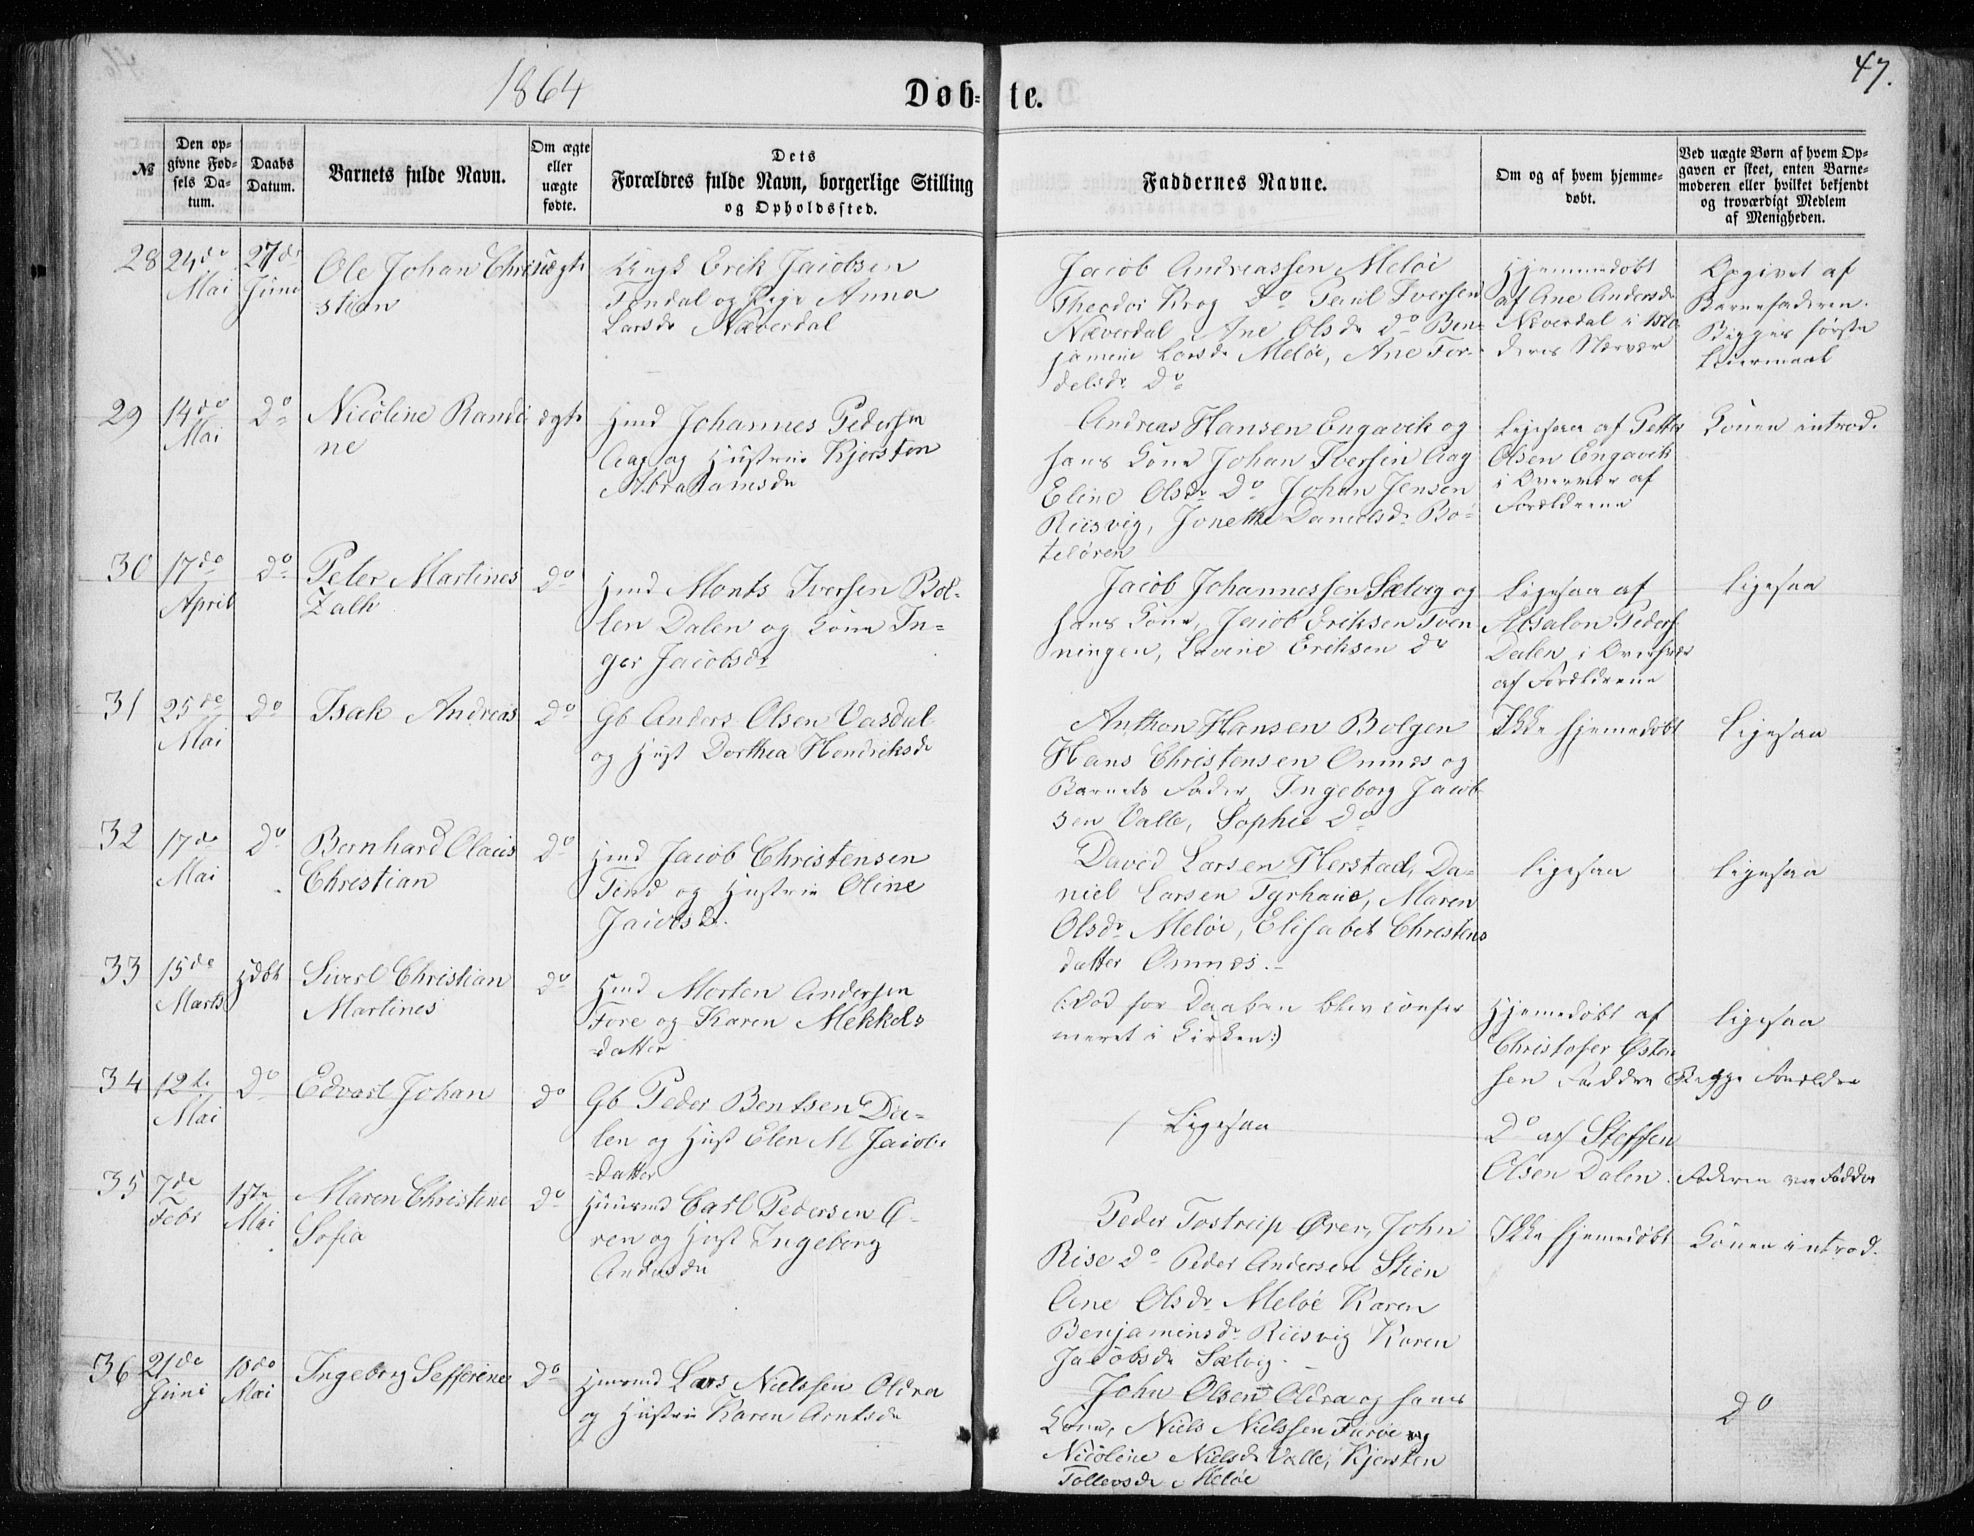 1864
Døb-te.
47.
№
Den op-
givne Fød-
sels Da-
tum.
Daabs
Datum.
Barnets fulde Navn.
Om ægte
eller
uægte
fødte.
Dets
Forældres fulde Navn, borgerlige Stilling
og Opholdssted.
Faddernes Navne.
Om og af hvem hjemme-
døbt.
Ved uægte Børn af hvem Op-
gaven er skeet, enten Barne-
moderen eller hvilket bekjendt
og troværdigt Medlem
af Menigheden.
28
24de
Mai
27de
Juni
Ole Johan Chri-
stian
uægte
Ungk Erik Jacobsen
Tendal og Pige Anna
Larsdr Næverdal
Jacob Andreassen Meløi
Theodor Krog Do Paul Iversen
Næverdal Ane Olsdr Do Ben-
jamine Larsdr Meløe, Ane Tor-
delsdr Do
Hjemmedøbt
af Ane Andersdr
Næverdal i Mo-
deres Nærvær
Opgivet af
Barnefaderen.
Begges første
Leiermaal
29
14de
Mai
Do
Nicoline Randi
ne
ægte
Hmd Johannes Pedersen
Aag og Hustrue Kjersten
Abrahamsdr
Andreas Hansen Engavik og
hans Kone Johan Iversen Aag
Eline Olsdr Do Johan Jensen
Riisvig, Jonetha Danielsdr Bo-
teløren
Ligesaa af Petter
Olsen Engavik
i Overvær af
Forældrene
Konen introd.
30
17de
April
Do
Peter Martines
Zalk
Do
Hmd Monts Iversen Bol-
len Dalen og Kone In-
ger Jacobsdr
Jacob Johannessen Sætvig og
hans Kone, Jacob Eriksen Tven
ningen, Lovine Eriksen do
Ligesaa af
Absalon Peders
Dalen i Overvær
af Forældrene
Ligesaa
31
25de
Mai
Do
Isak Andreas
Do
Gb Anders Olsen Vasdal
og Hust Dorthea Hendriksdr
Anthon Hansen Bolgen
Hans Christensen Onnæs og
Barnets Fader, Ingeborg Jacob-
sen Valle, Sophie Do
Ikke hjemedøbt
Ligesaa
32
17de
Mai
Do
Bernhard Olaus
Christian
Do
Hmd Jacob Christensen
Tind og Hustrue Oline
Jacobsd.
David Larsen Herstad, Da-
niel Larsen Tyrhaue, Maren
Olsdr Meløe, Elisabet Christens
datter Onnæs.-
Ligesaa
Ligesaa
33
15de
Marts
Hdbt
Sivert Christian
Martines
Do
Hmd Morten Andersen
Fore og Karen Mekkels
datter
(:Død før Daaben blev confir
meret i Kirken:)
Hjemedøbt af
Christofer Østen
sen Faddre Begge Forældre
Ligesaa
34
12te
Mai
Do
Edvart Johan
do
Gb Peder Bentsen Da-
len og Hust Elen M Jacobs
datter
Ligesaa
Do af Steffen
Olsen Dalen.
Faderen var Fadder
35
7de
Febr
1ste
Mai
Maren Christene
Sofia
Do
Huusmd Carl Pedersen Ø-
ren og Hust Ingeborg
Andersdr
Peder Tostrup Ører, John
Rise do Peder Andersen Stien
Ane Olsdr Meløe Karen
Benjaminsdr Riisvig Karen
Jacobsdr Sætvig.
Ikke hjemedøbt
Konen introd.
36
21de
Juni
18de
Mai
Ingeborg Sefferine
Do
Huusmd Lars Nielssen Oldra
og Hustrue Karen Arntsdr
John Olsen Oldra og hans
Kone, Niels Nielssen Furøe og
Nicoline Nielsdr Valle, Kjersten
Tollevsdr Meløe
Do